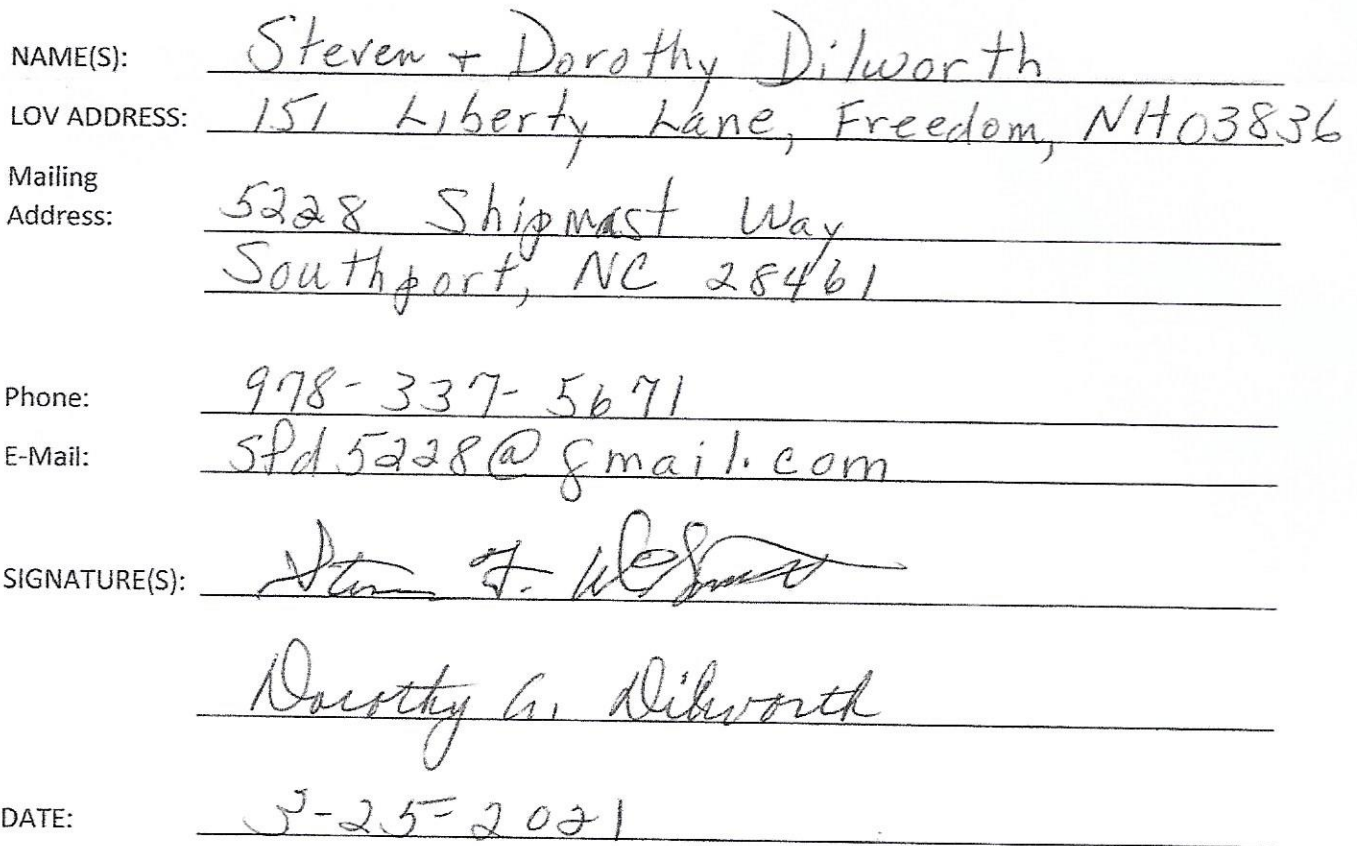 NAME(S): Steven + Dorothy Dilworth
LOV ADDRESS: 151 Liberty Lane, Freedom, NH 03836
Mailing
Address: 5228 Shipmast Way
Southport, NC 28461
Phone: 978-337-5671
E-Mail: sfd5228@gmail.com
SIGNATURE(S): Steven F. Dilworth
Dorothy G. Dilworth
DATE: 3-25-2021